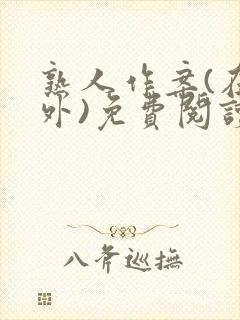 熟人作案(存
外)免費閱讀
八斧巡撫